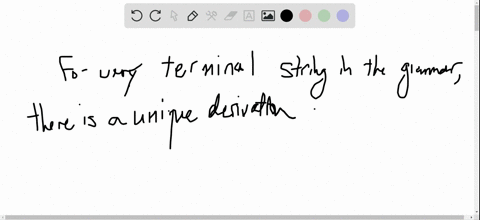 For every terminal string in the grammar,
there is a unique derivation.